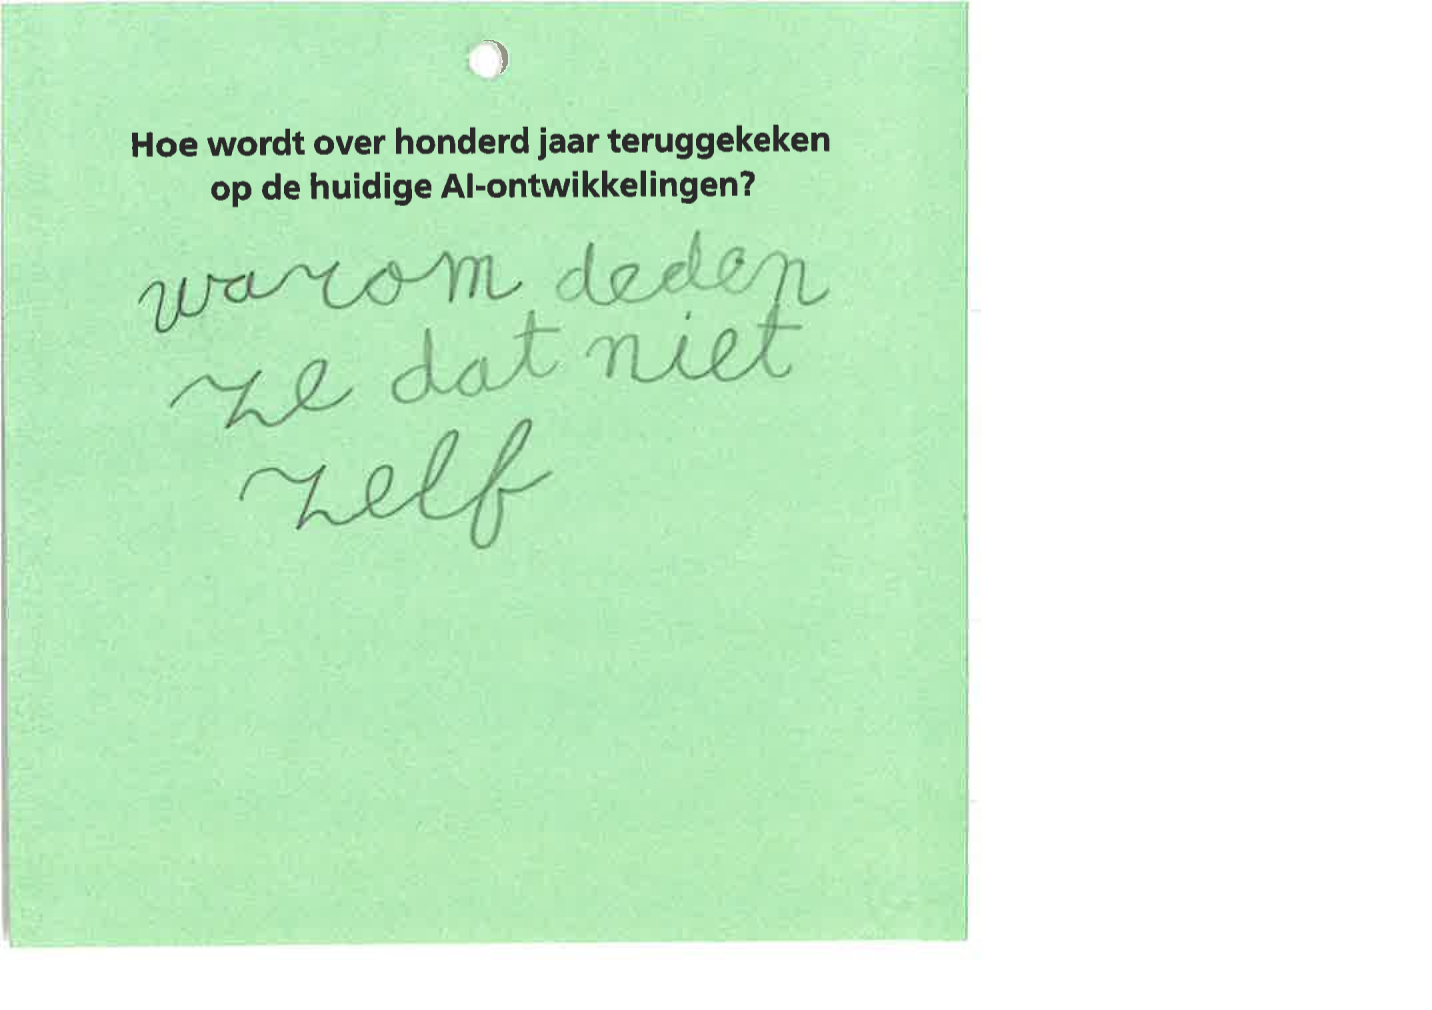 Hoe wordt over honderd jaar teruggekeken
op de huidige AI-ontwikkelingen?
warom deden
ze dat niet
zelf